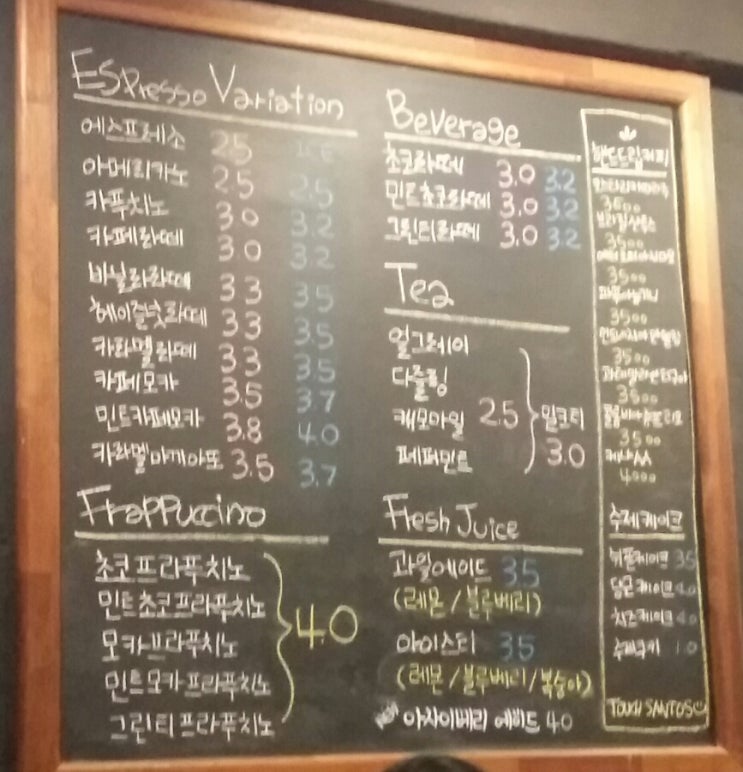 Espresso Variation
에스프레소 2.5
아메리카노 2.5 2.5
카푸치노 3.0 3.2
카페라떼 3.0 3.2
바닐라라떼 3.3 3.5
헤이즐넛라떼 3.3 3.5
카라멜라떼 3.3 3.5
카페모카 3.5 3.7
민트카페모카 3.8 4.0
카라멜마끼아또 3.5 3.7
Frappuccino
초코프라푸치노
민트초코프라푸치노
모카프라푸치노
민트모카프라푸치노
그린티프라푸치노
4.0
Beverage
초코라떼 3.0 3.2
민트초코라떼 3.0 3.2
그린티라떼 3.0 3.2
Tea
얼그레이
다즐링
캐모마일 2.5 밀크티
페퍼민트 3.0
Fresh Juice
과일에이드 3.5
(레몬/블루베리)
아이스티 3.5
(레몬/블루베리/복숭아)
아사이베리 에이드 4.0
핸드드립커피
3500
3500
3500
3500
3500
3500
3500
케냐AA
4000
수제케이크
와플케이크 3.5
치즈케이크 4.0
수제쿠키 1.0
TOUCH SANTOS